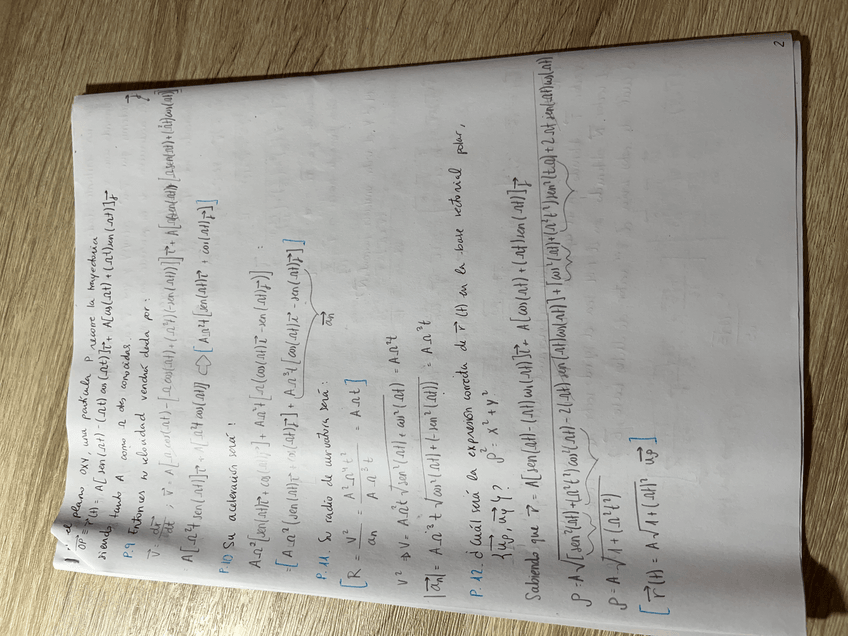 el plano OXY, una partícula P recorre la trayectoria
OP ≡ r(t) = A[sen(Ωt) - (Ωt)cos(Ωt)]i + A[cos(Ωt) + (Ωt)sen(Ωt)]j
siendo tanto A como Ω dos conocidas.
P.9 Entonces su velocidad vendrá dada por:
V = dr/dt ; V = A[Ωcos(Ωt) - [Ωcos(Ωt) + (Ω²t)(-sen(Ωt))]]i + A[
A[Ω²t sen(Ωt)]i + A[Ω²t cos(Ωt)]j ⇨ [AΩ²t[sen(Ωt)i + cos(Ωt)j]]
P.10 Su aceleración será:
AΩ²[sen(Ωt)i + cos(Ωt)j] + AΩ²t[Ω(cos(Ωt)i - sen(Ωt)j)] :
= [AΩ²(sen(Ωt)i + cos(Ωt)j) + AΩ³t(cos(Ωt)i - sen(Ωt)j)]
an
P.11. Su radio de curvatura será:
[R = V²/an = A²Ω⁴t²/AΩ³t = AΩt]
V² ⇒ V = AΩ²t √(sen²(Ωt) + cos²(Ωt)) = AΩ²t
|an| = AΩ³t √(cos²(Ωt) + (-sen²(Ωt))) = AΩ³t
P.12. ¿Cuál será la expresión correcta de r(t) en la base vectorial polar,
{up, uy}? ρ² = x² + y²
Sabiendo que r = A[sen(Ωt) - (Ωt)cos(Ωt)]i + A[cos(Ωt) + (Ωt)sen(Ωt)]j
ρ = A√([sen²(Ωt) + (Ω²t²)cos²(Ωt) - 2(Ωt)sen(Ωt)cos(Ωt)] + [cos²(Ωt) + (Ω²t²)sen²(tΩ) + 2Ωt sen(Ωt)cos(Ωt)
ρ = A√(1 + (Ω²t²))
[r(t) = A√(1 + (Ωt)²) up]
2